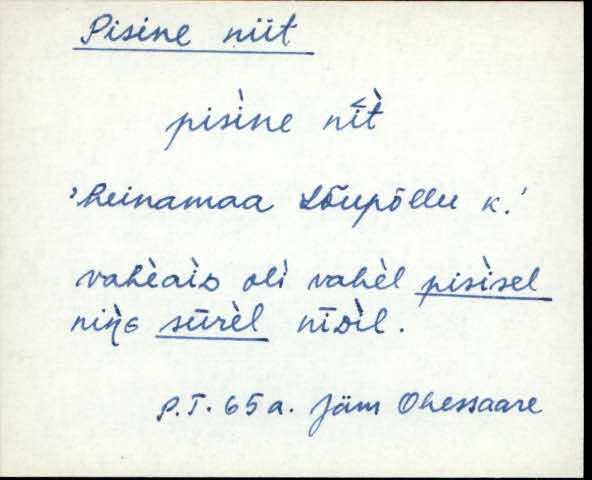 Pisine niit
pisìne nī̬t̀
'heinamaa Lõupõllu k.'
vahèaiᴅ oli vahèl pisìsel
niŋ̀ɢ sūrèl nīᴅìl.
P.T. 65 a. Jäm Ohessaare